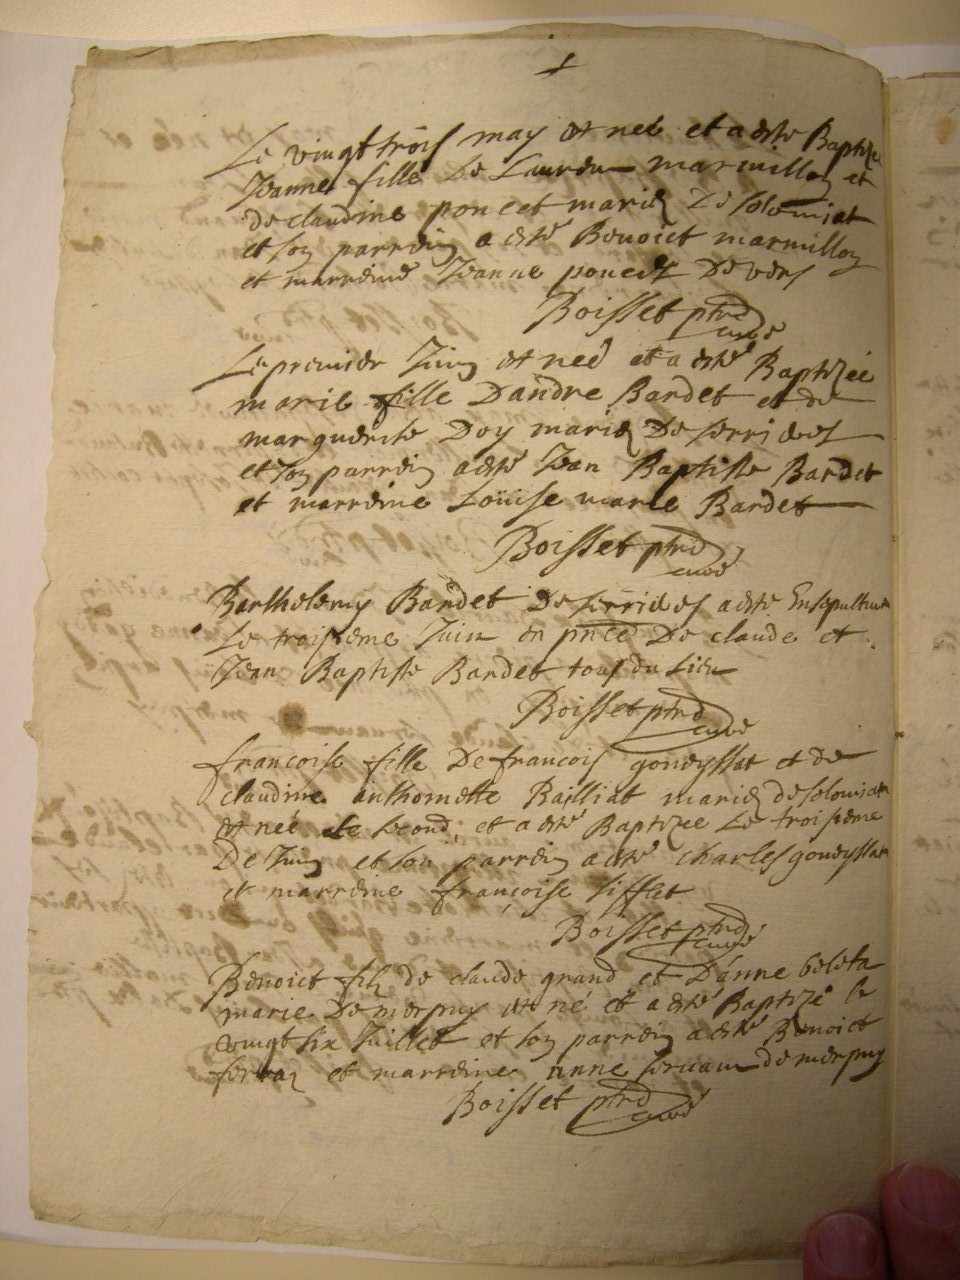 Le vingt trois may et neé et a esté Baptizeé
Jeanne fille De Laurens marmillon et
de claudine poncet mariez De solomiat
et son parrein a esté Benoict marmillon
et marreine Jeanne poncet De vers
Boisset ptre
curé
Le premier Juin et neé et a esté Baptizeé
marie fille D'andre Bardet et de
marguerite Doy mariez De serrieres
et son parrein a esté Jean Baptiste Bardet
et marreine Louise marie Bardet
Boisset ptre
curé
Barthelemy Bardet De serrieres a esté Ensepulturé
Le troisieme Juin en pnce De claude et
Jean Baptiste Bardet tous du Lieu
Boisset ptre
curé
francoise fille De francois goneyssat et de
claudine anthoinette Bailliat mariez de solomiat
et neé Le second, et a esté Baptizee Le troisieme
De Juin et son parrein a esté charles goneyssat
et marreine françoise siffert
Boisset ptre
curé
Benoict filz de claude grand et D'anne beleta
marie De merpuy et né et a esté Baptizé le
vingt six Juillet et son parrein a esté Benoict
et marreine anne servan de merpuy
Boisset ptre
curé